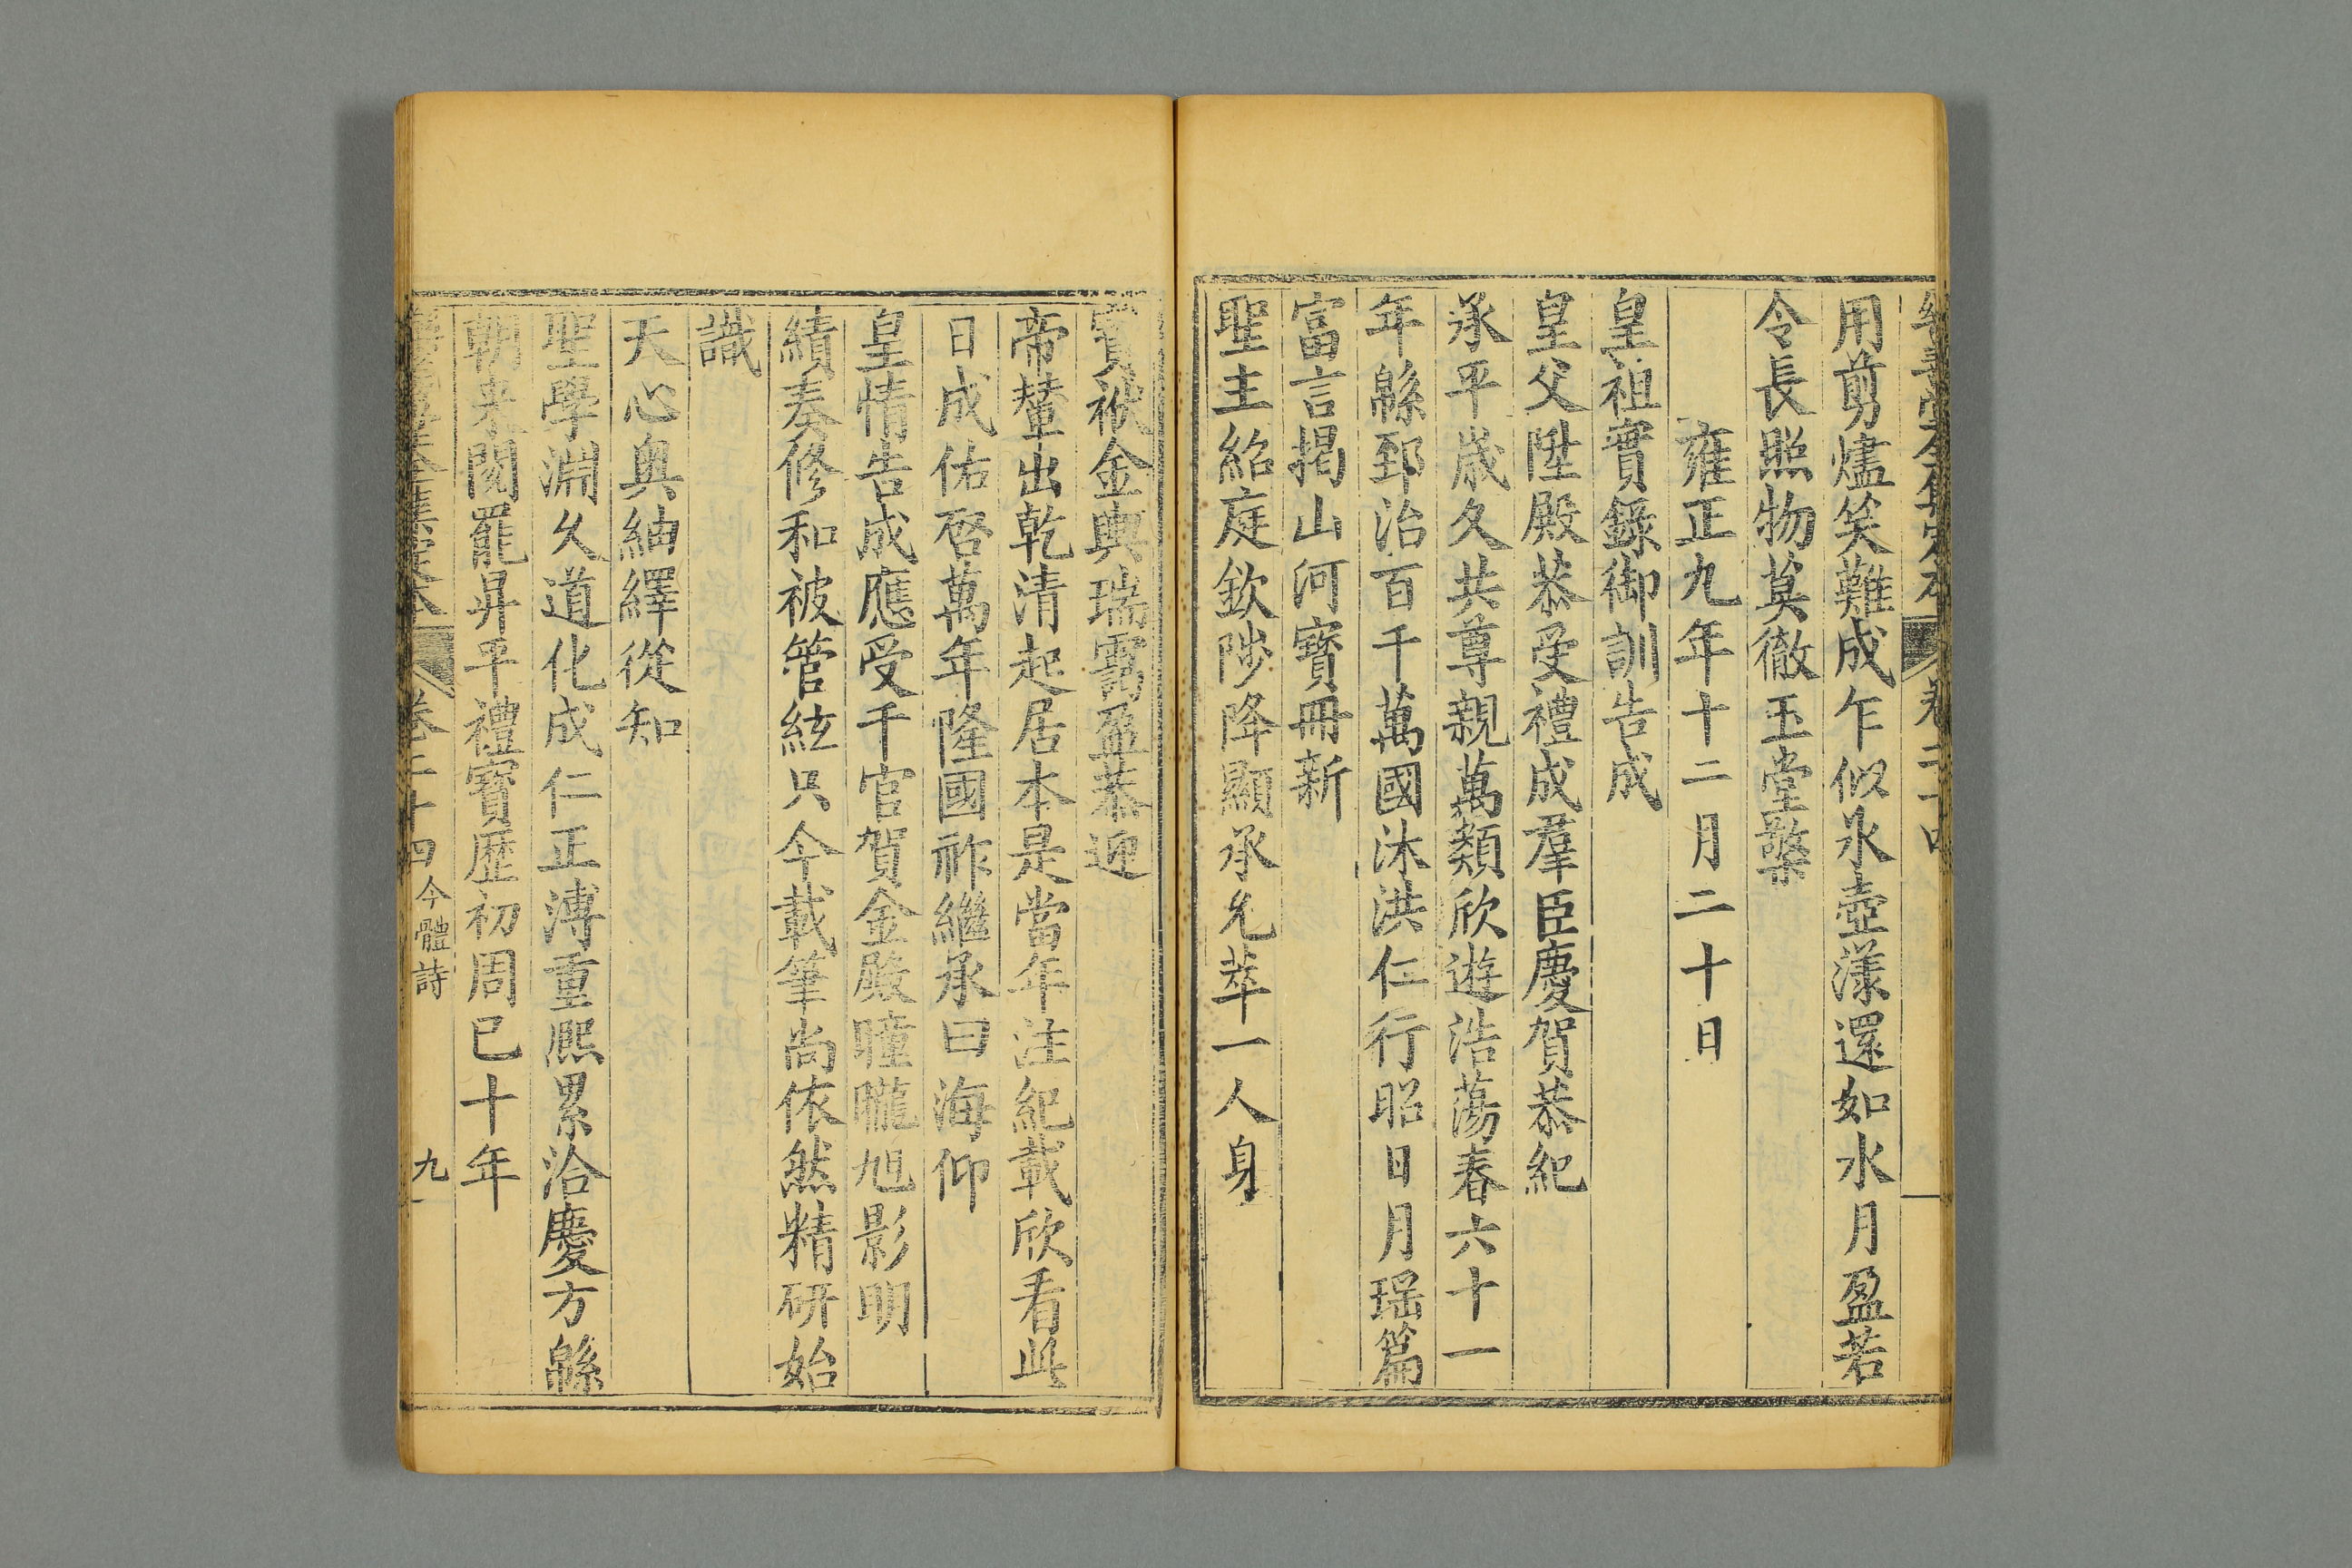 用剪燼笑難成乍似氷壺漾還如水月盈若
令長照物莫徹玉堂檠
雍正九年十二月二十日
皇祖實錄御訓告成
皇父陞殿恭受禮成羣臣慶賀恭紀
承平歲久共尊親萬類欣遊浩蕩春六十一
年緜郅治百千萬國沐洪仁行昭日月瑶篇
富言揭山河寶冊新
聖主紹庭欽陟降顯承允萃一人身
寳袱金輿瑞靄盈恭迎
帝輦出乾清起居本是當年注紀載欣看此
日成佑啓萬年隆國祚繼承曰海仰
皇情告成應受千官賀金殿曈曨旭影明
績奏修和被管絃只今載筆尚依然精研始
識
天心奥紬繹從知
聖學淵久道化成仁正溥重熙累洽慶方緜
朝来閱罷昇平禮寳歷初周已十年
卷二十四 今體詩 九